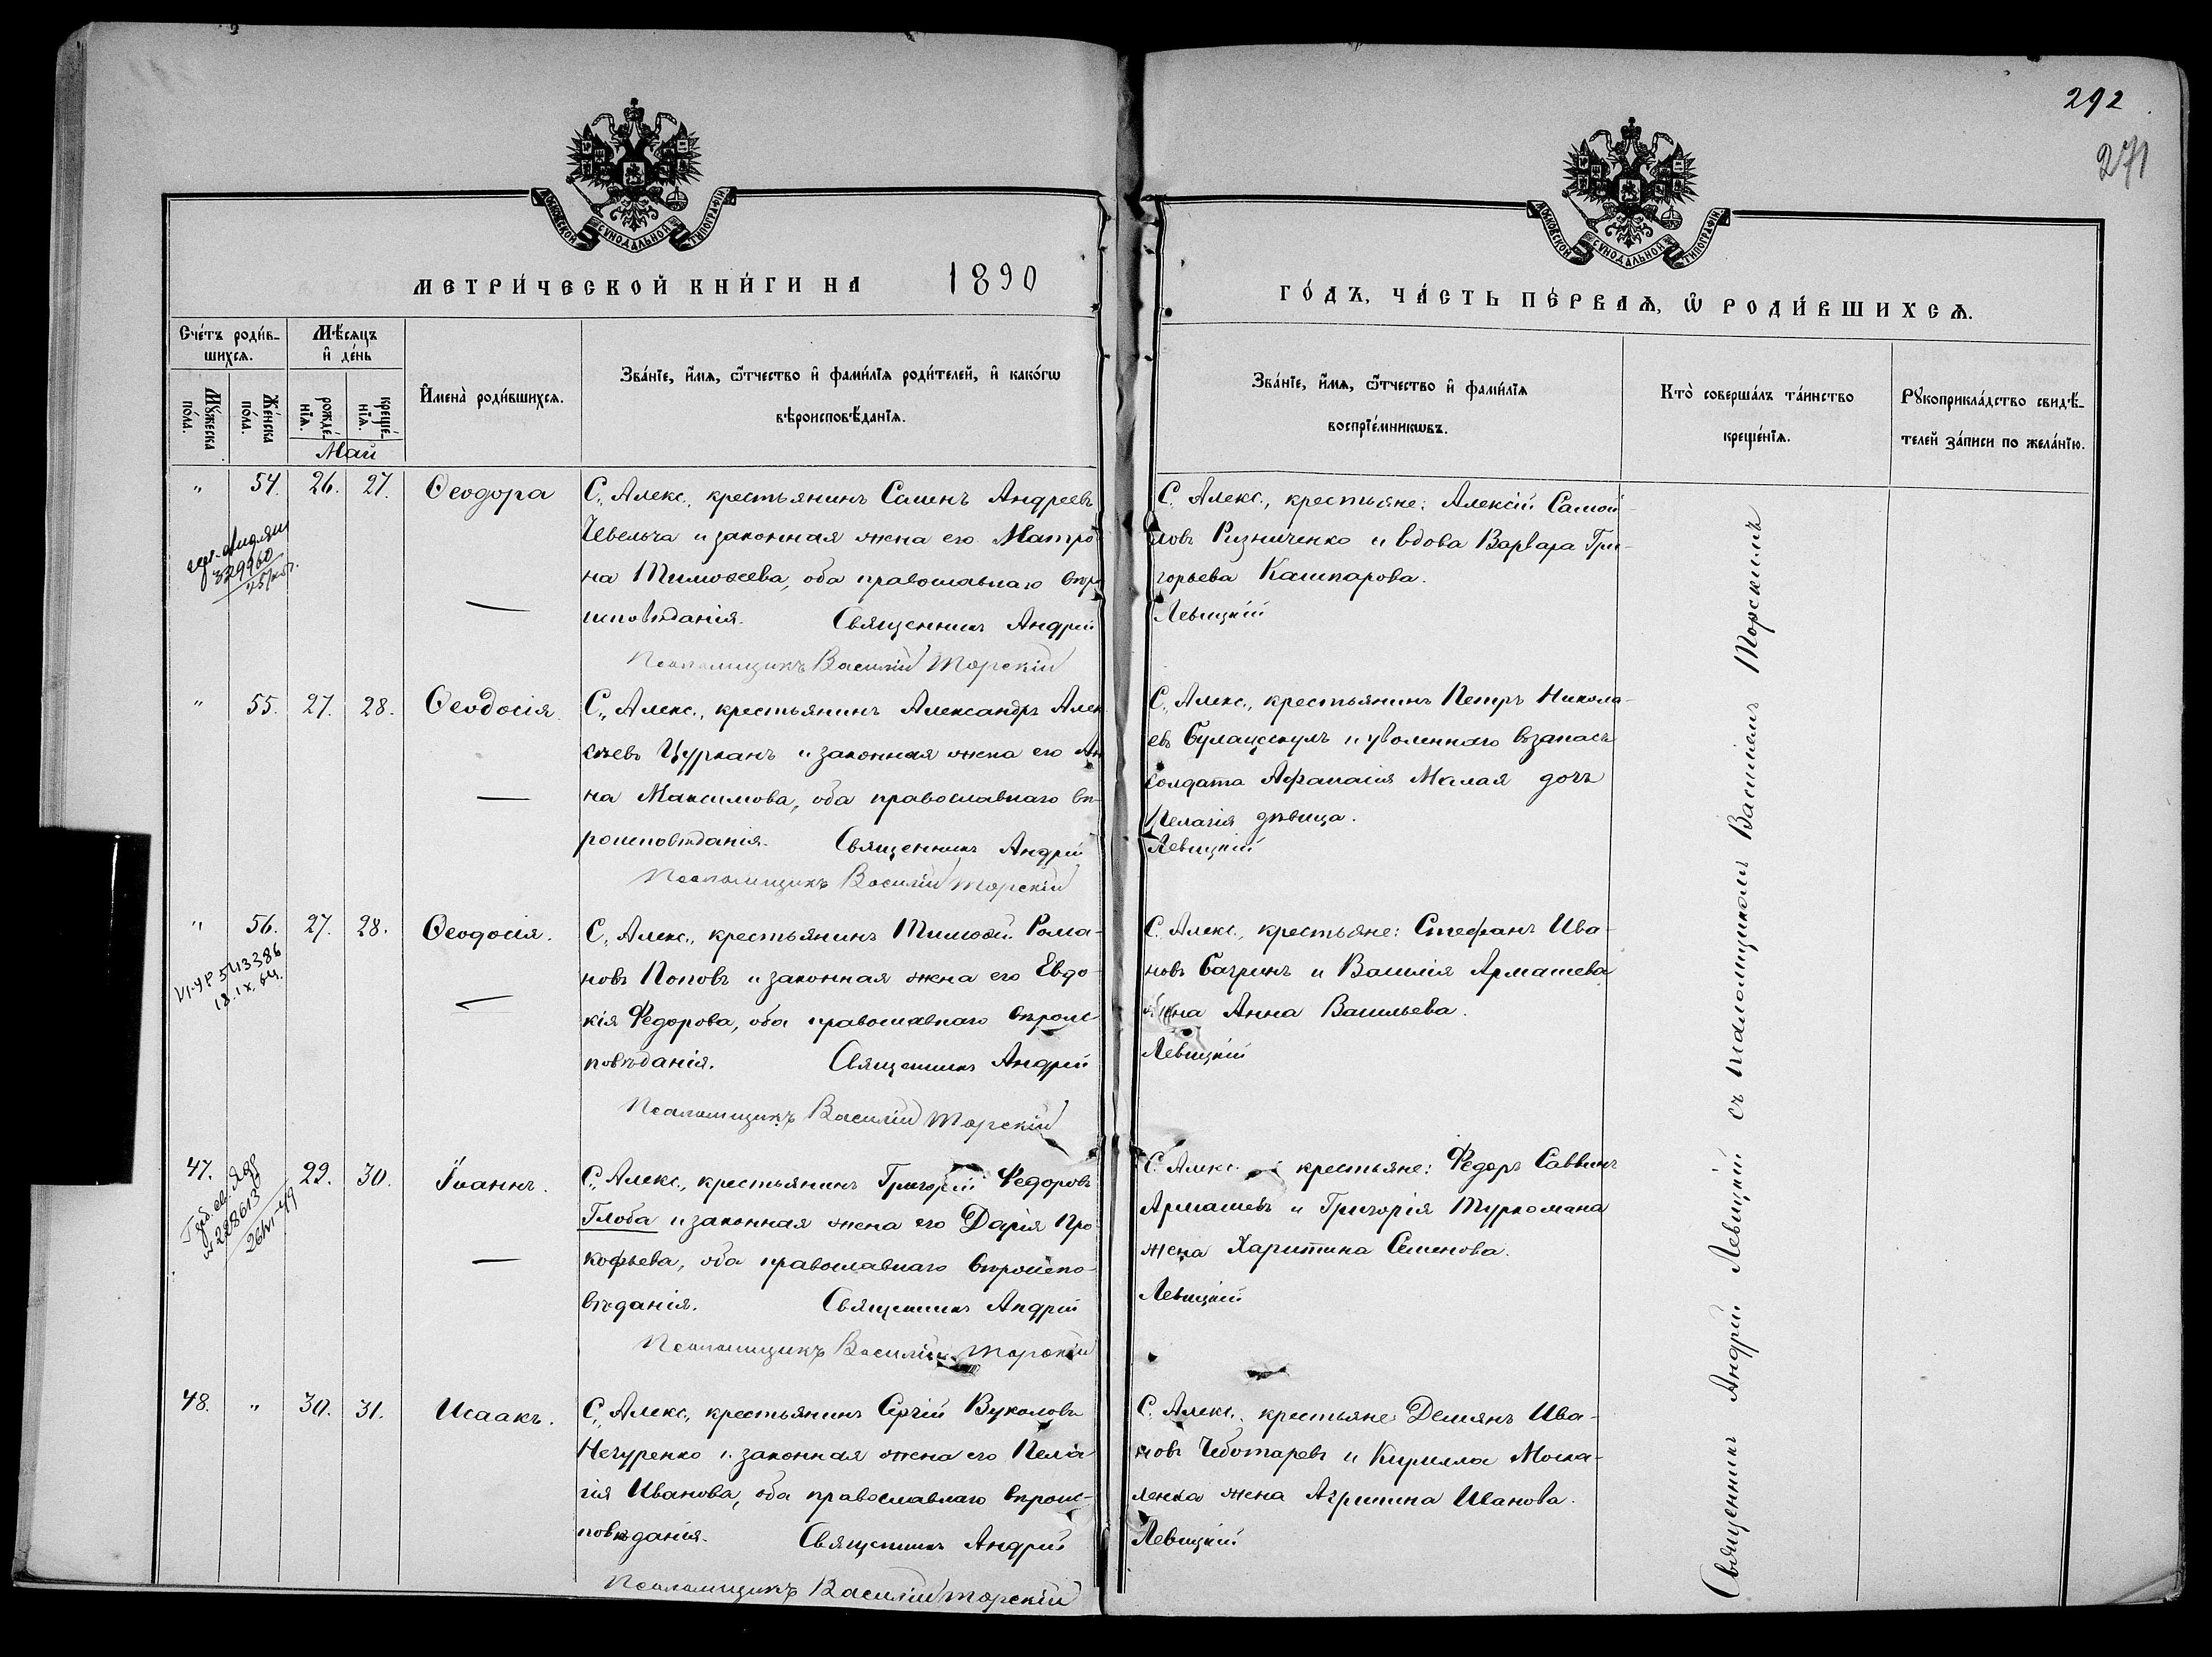 292
271
МОСКОВСКОЙ СѴНОДАЛЬНОЙ ТИПОГРАФІИ
МЕТРИ́ЧЕСКОЙ КНИ́ГИ НА 1890
Сче́тъ роди́в-
шихсѧ.
Мꙋ́жеска
по́ла.
Же́нска
по́ла.
Мѣ́сѧцъ
и҆ де́нь
рожде́-
нїѧ.
креще́-
нїѧ.
Май
И҆мена̀ роди́вшихсѧ.
Зва́нїе, и҆́мѧ, ѻ҆́тчество и҆ фами́лїѧ роди́телей, и҆ како́гѡ
вѣроисповѣ́данїѧ.
" 54. 26. 27. Ѳеодора
329960
С., Алекс., крестьянинъ Семенъ Андреевъ
Чевельча и законная жена его Матро-
на Тимоѳеева, оба православнаго вѣро
исповѣданія. Священникъ Андрей
Псаломщикъ Василій Торскій
" 55. 27. 28. Ѳеодосія.
С., Алекс., крестьянинъ Александръ Алек
сѣевъ Цурканъ и законная жена его Ан
на Максимова, оба православнаго вѣ-
роисповѣданія. Священникъ Андрей
Псаломщикъ Василій Торскій
" 56. 27. 28. Ѳеодосія.
VI-УР 5413386
18.IX.64.
С., Алекс., крестьянинъ Тимоѳей Рома-
новъ Поповъ и законная жена его Евдо-
кія Федорова, оба православнаго вѣроис
повѣданія. Священникъ Андрей
Псаломщикъ Василій Торскій
47. 29. 30. Іоаннъ.
№ 228613
26/VI-49
С., Алекс., крестьянинъ Григорій Федоровъ
Глоба и законная жена его Дарія Про
кофьева, оба православнаго вѣроиспо-
вѣданія. Священникъ Андрей
Псаломщикъ Василій Торскій
48. " 30. 31. Исаакъ.
С., Алекс., крестьянинъ Сергій Вуколовъ
Нечуренко и законная жена его Пела-
гія Иванова, оба православнаго вѣроис-
повѣданія. Священникъ Андрей
Псаломщикъ Василій Торскій
МОСКОВСКОЙ СѴНОДАЛЬНОЙ ТИПОГРАФІИ
ГО́ДЪ, ЧА́СТЬ ПЕ́РВАѦ, Ѽ РОДИ́ВШИХСѦ.
Зва́нїе, и҆́мѧ, ѻ҆́тчество и҆ фами́лїѧ
воспрїе́мникѡвъ.
Кто̀ соверша́лъ та́инство
креще́нїѧ.
Рꙋкоприкла́дство свидѣ́-
телей за́писи по жела́нїю.
С. Алекс., крестьяне: Алексій Самой-
ловъ Ризниченко и вдова Варвара Гри-
горьева Кашпарова.
Левицкій
С., Алекс., крестьянинъ Петръ Никола-
евъ Булацскулъ и уволеннаго въ запасъ
солдата Афанасія Малая дочь
Пелагія дѣвица.
Левицкій
С. Алекс., крестьяне: Стефанъ Ива-
новъ Багринъ и Василія Армашева
жена Анна Васильева.
Левицкій
С. Алекс. крестьяне: Федоръ Саввинъ
Армашевъ и Григорія Туркомана
жена Харитина Семенова.
Левицкій
С. Алекс. крестьяне Деміянъ Ива-
новъ Чеботаревъ и Кирилла Моска-
ленка жена Агрипина Иванова.
Левицкій
Священникъ Андрей Левицкій съ псаломщикомъ Василіемъ Торскимъ